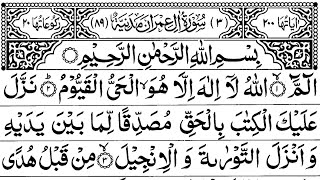 اٰیَاتُهَا ٢٠٠ (٣) سُوْرَةُ اٰلِ عِمْرٰنَ مَدَنِيَّةٌ (٨٩) رُكُوْعَاتُهَا ٢٠
بِسْمِ اللّٰهِ الرَّحْمٰنِ الرَّحِيْمِ
الٓمّٓ ۝١ اللّٰهُ لَاۤ اِلٰهَ اِلَّا هُوَ الْحَيُّ الْقَيُّوْمُ ۝٢ نَزَّلَ
عَلَيْكَ الْكِتٰبَ بِالْحَقِّ مُصَدِّقًا لِّمَا بَيْنَ يَدَيْهِ
وَ اَنْزَلَ التَّوْرٰىةَ وَ الْاِنْجِيْلَ ۝٣ مِنْ قَبْلُ هُدًى